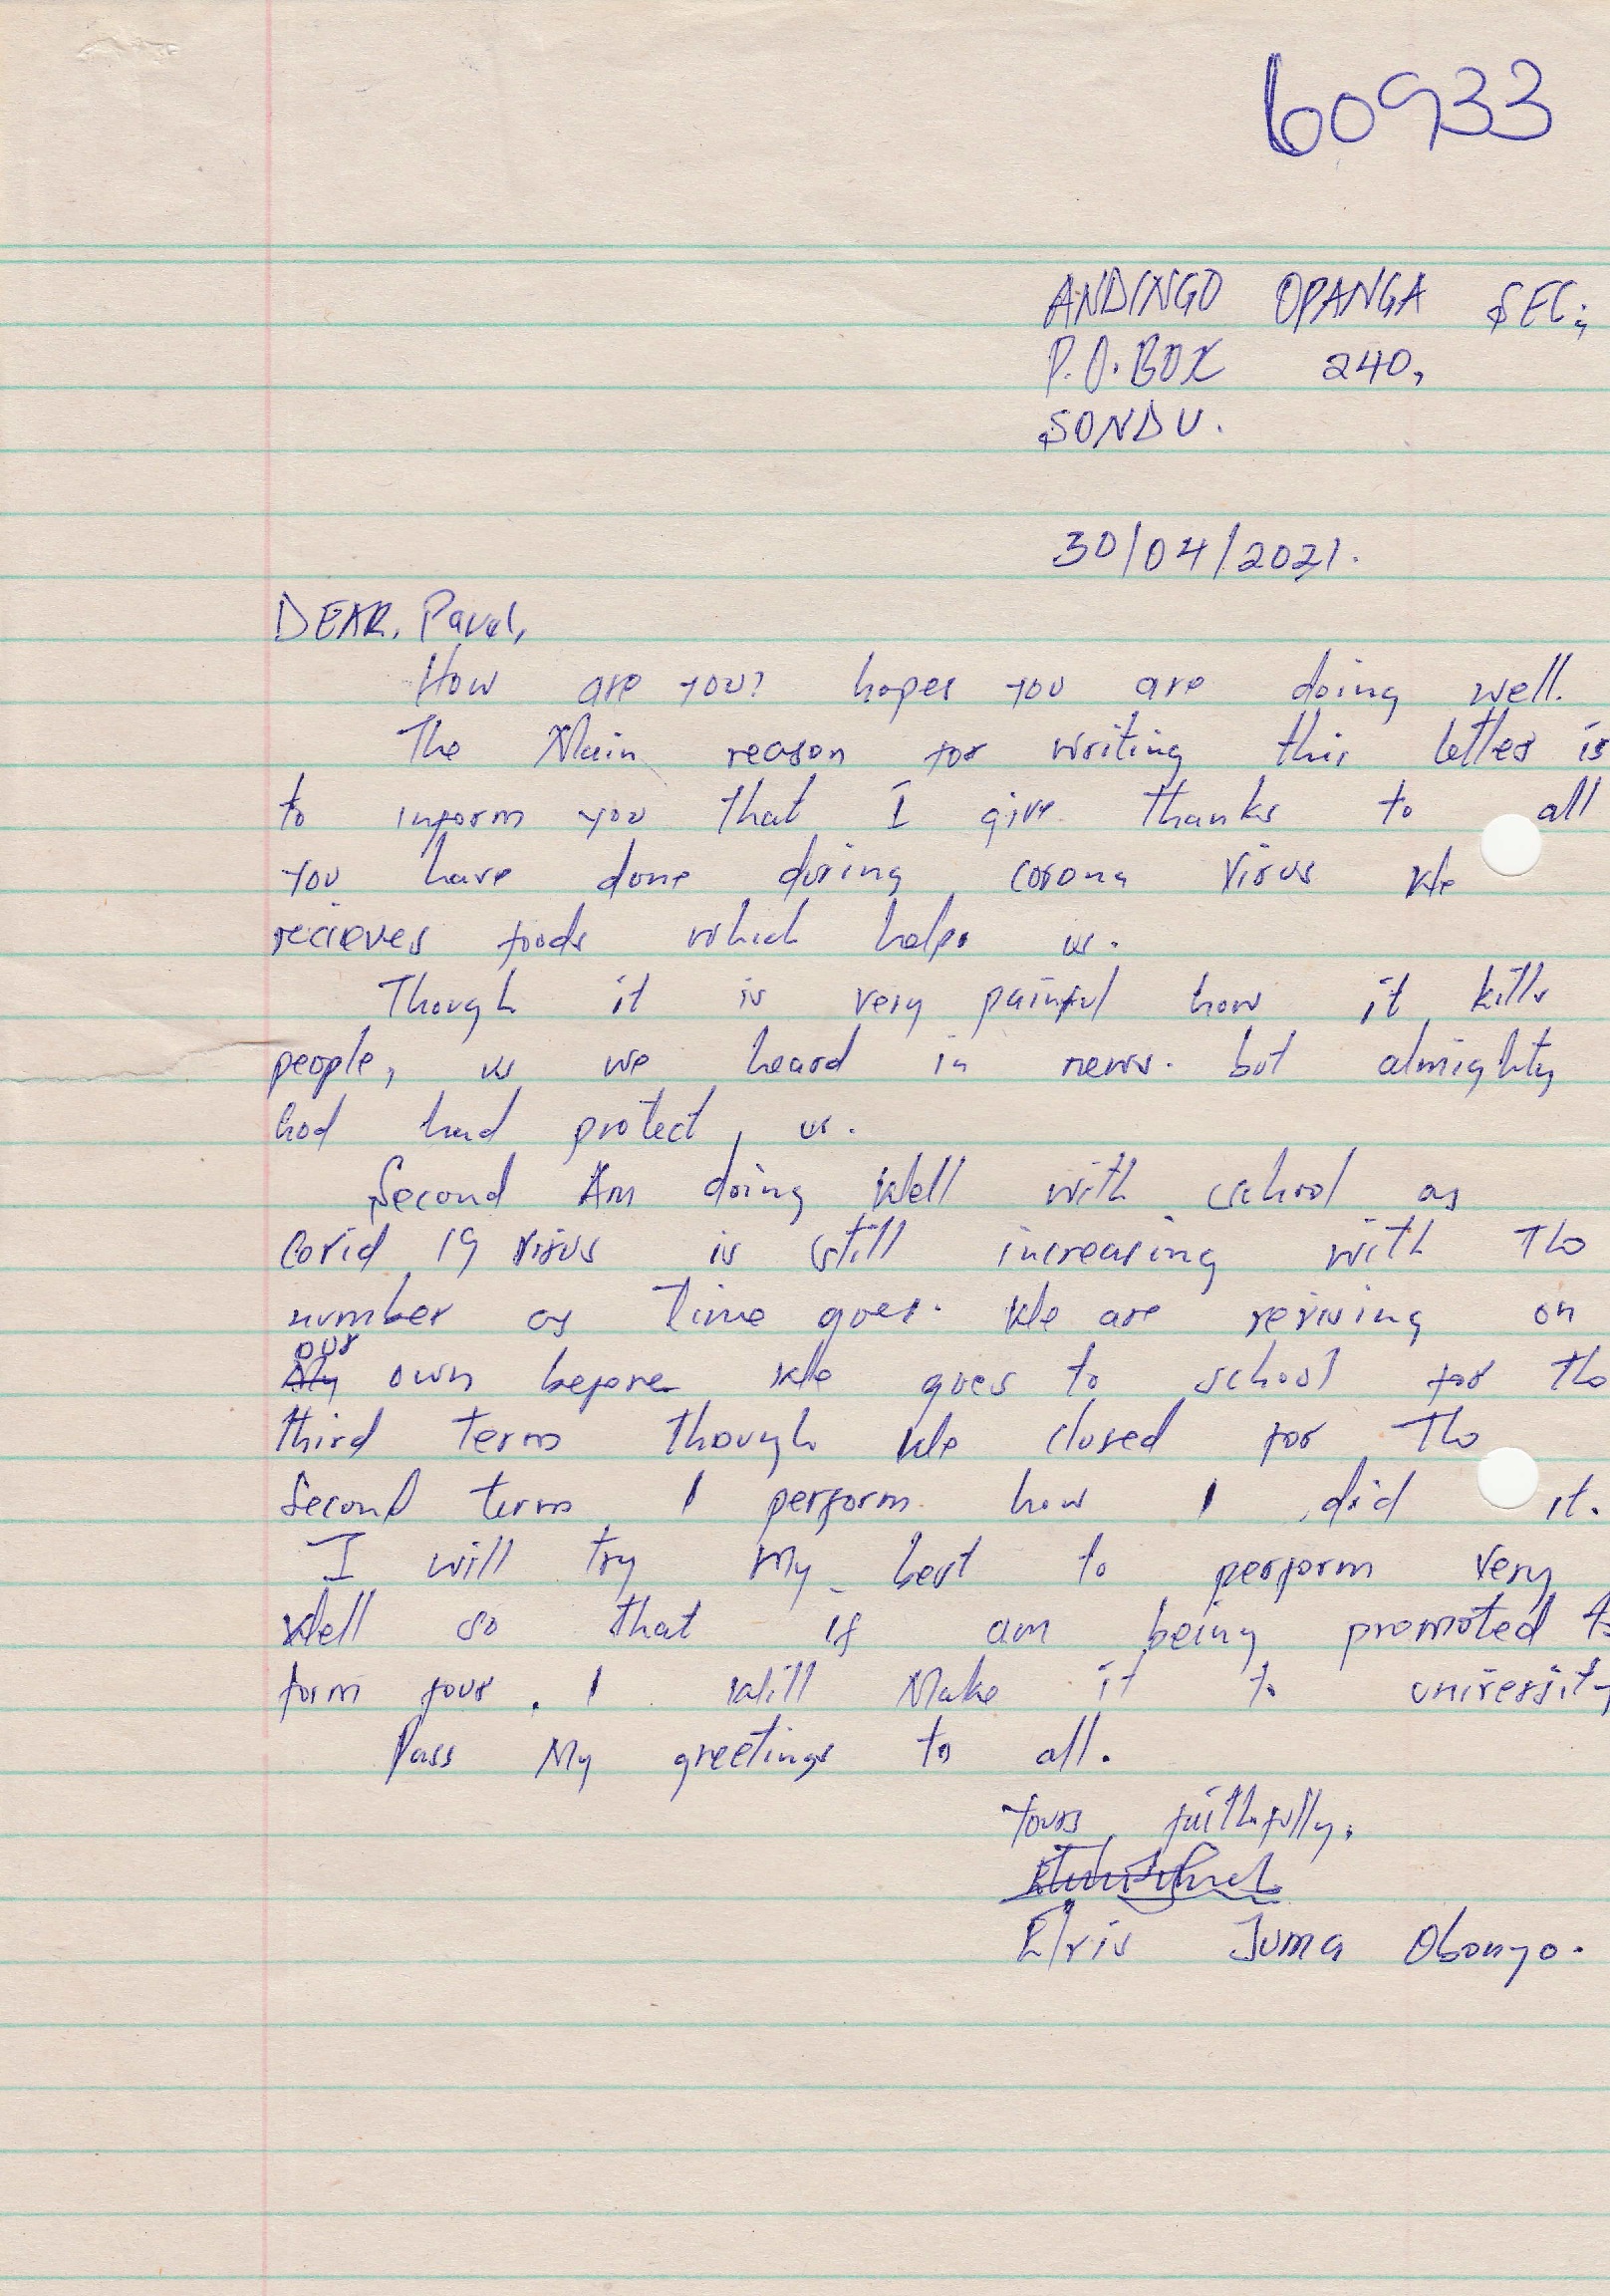 60933
ANDINGO OPANGA SEC;
P.O.BOX 240,
SONDU.
30/04/2021.
DEAR, Pavel,
How are you? hopes you are doing well.
The Main reason for writing this letter is
to inform you that I give thanks to all
you have done during corona virus We
recieves foods which helps us.
Though it is very painful how it kills
people, as we heard in news. but almighty
God had protect us.
Second Am doing well with school as
Covid 19 virus is still increasing with the
number as time goes. We are reviving on
our
My own before we goes to school for the
third term though We closed for the
Second term I perform how I did it.
I will try My best to perform very
Well so that if am being promoted to
form four. I Will Make it to university
Pass My greetings to all.
Yours faithfully,
Elvis Juma Obonyo.